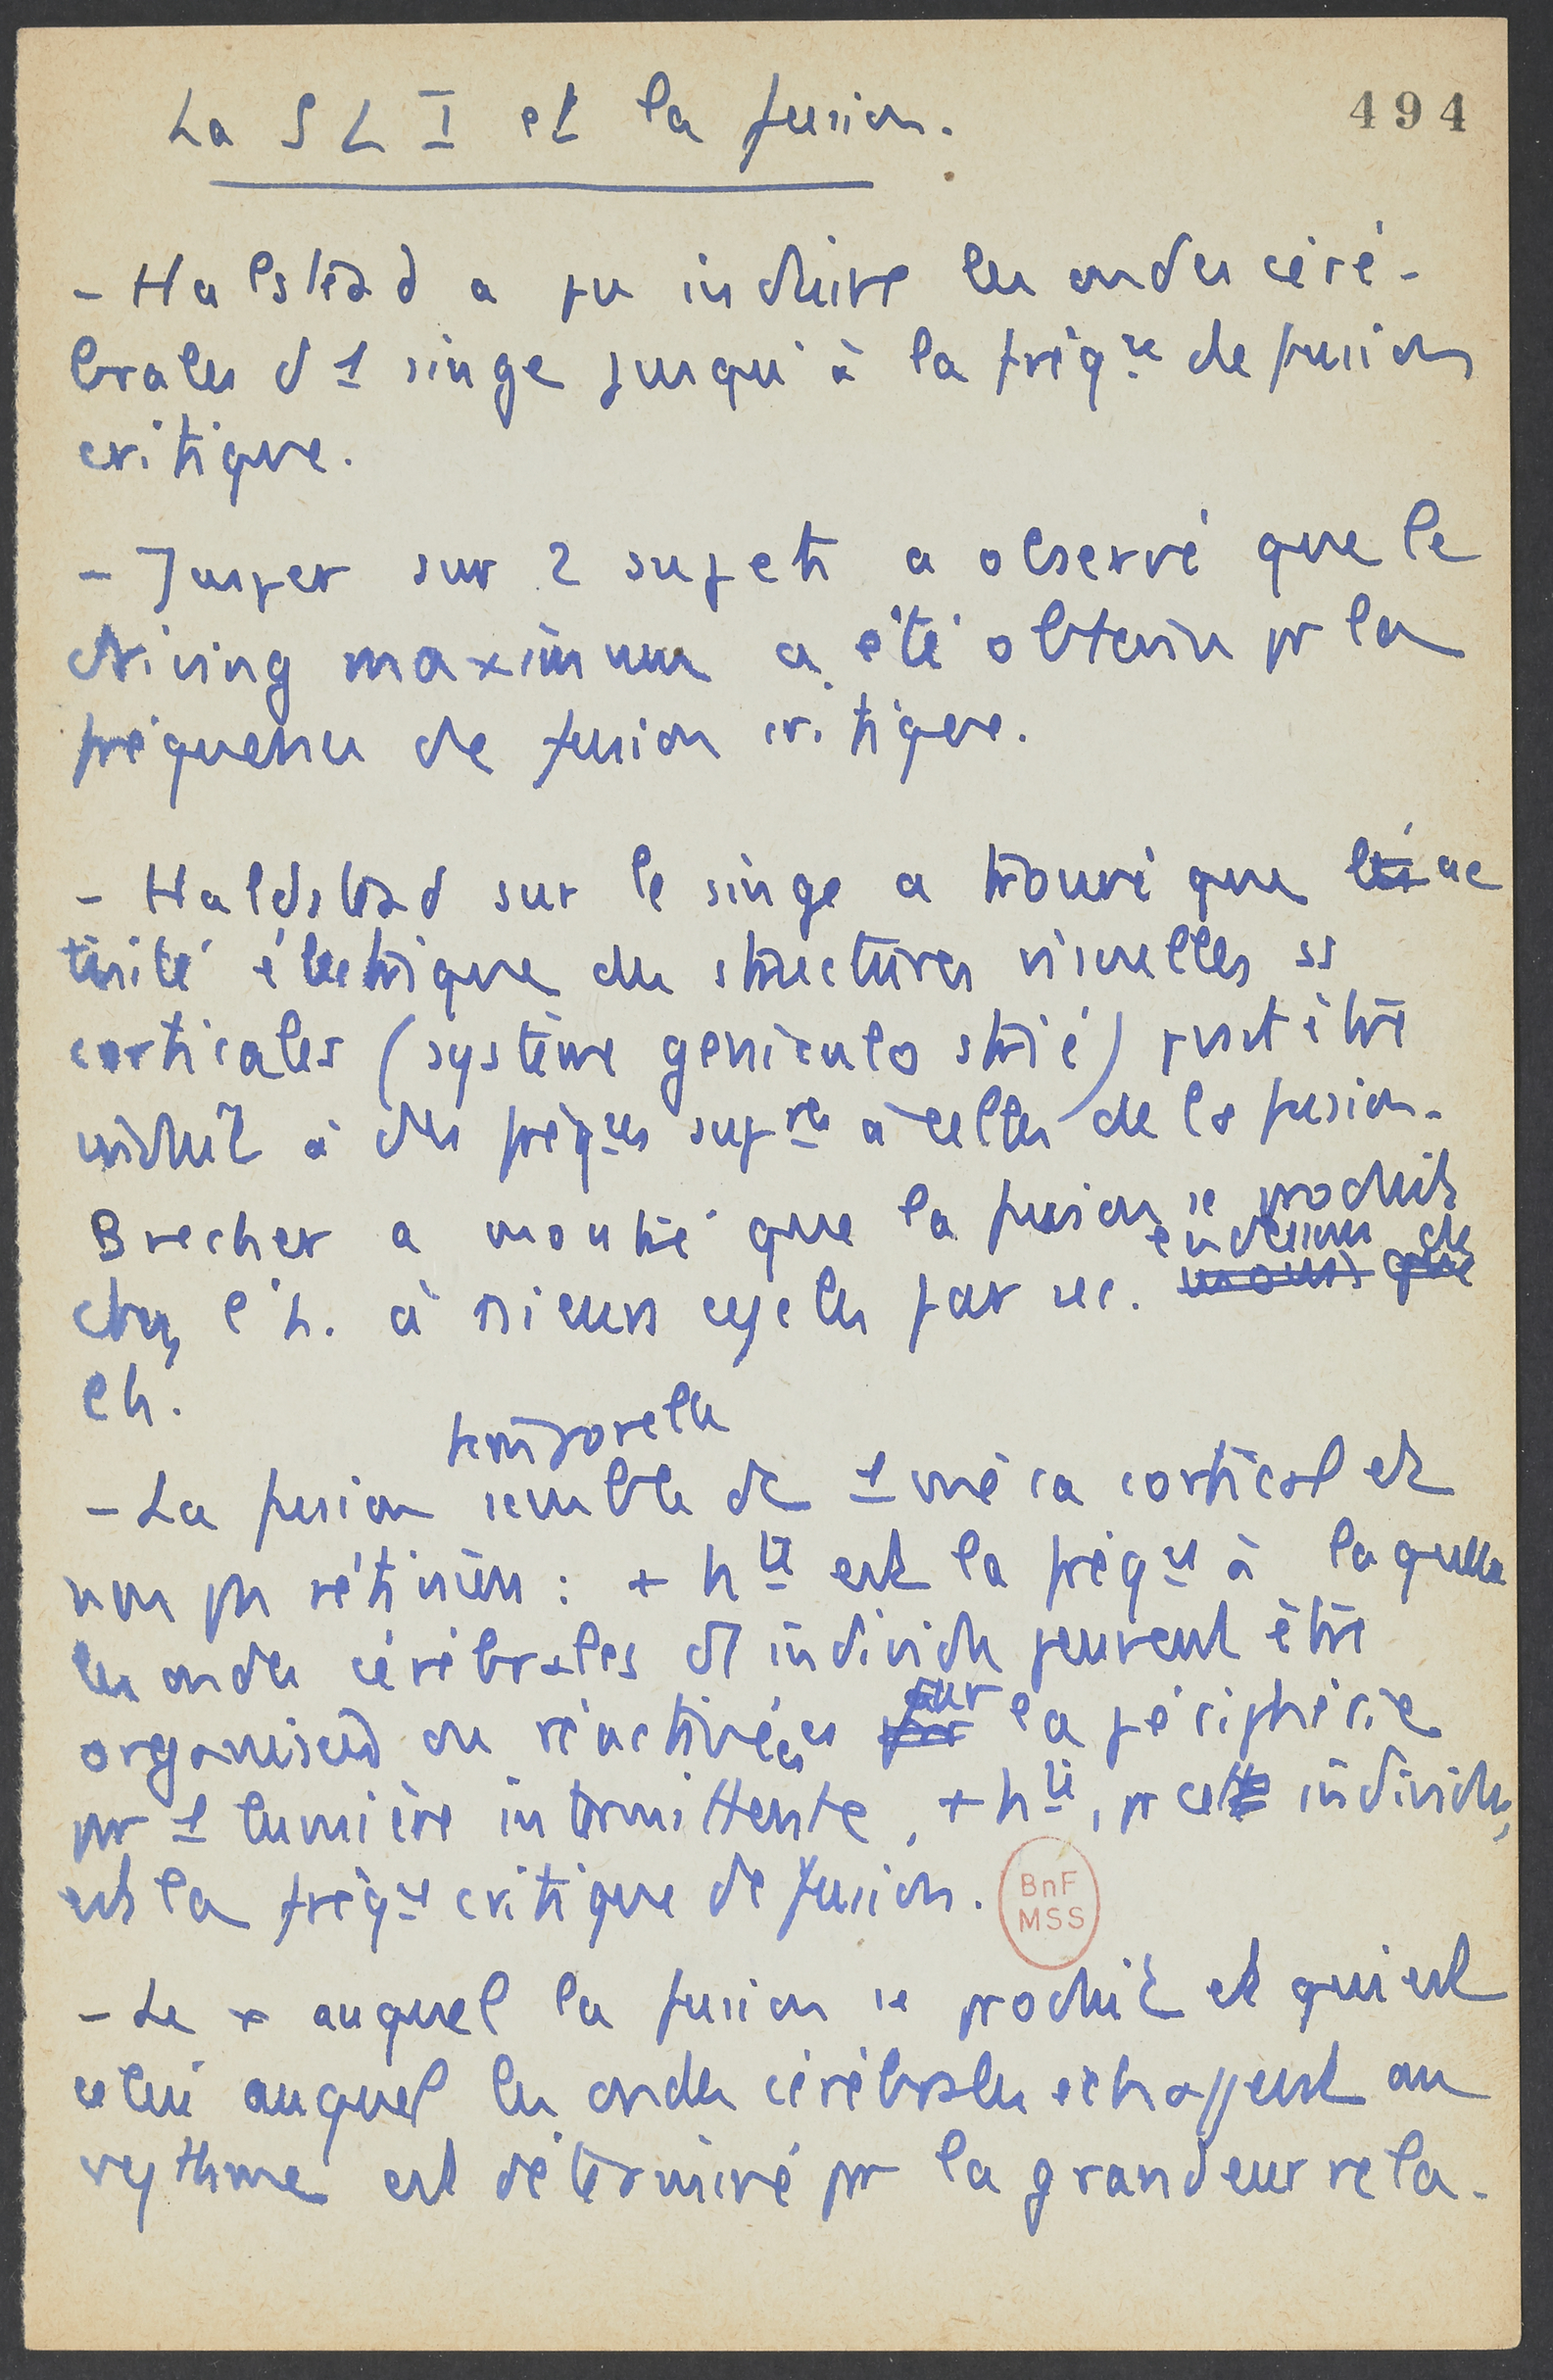 494
La SLI et la fusion.
- Halstead a pu induire les ondes céré-
brales d 1 singe jusqu'à la fréqce de fusion
critique.
- Jasper sur 2 sujets a observé que le
driving maximum a été obtenu pr la
fréquence de fusion critique.
- Haldstead sur le singe a trouvé que l'ac
tivité électrique des structures visuelles ss
corticales (système geniculo strié) peut être
induit à des fréqces supres à celles de la fusion.
Brecher a montré que la fusion se produit
chez l'h. à 18 cycles par sec. en dessous de
temporelle
- La fusion semble de 1 méca cortical et
non pas rétinien : + hte est la fréqce à laquelle
les ondes cérébrales d1 individu peuvent être
organisées ou réactivées sur la périphérie
pr 1 lumière intermittente, + hte, pr cet individu,
est la fréqce critique de fusion.
BnF
MSS
- Le x auquel la fusion se produit et qui est
celui auquel les ondes cérébrales echappent au
rythme est déterminé pr la grandeur rela-